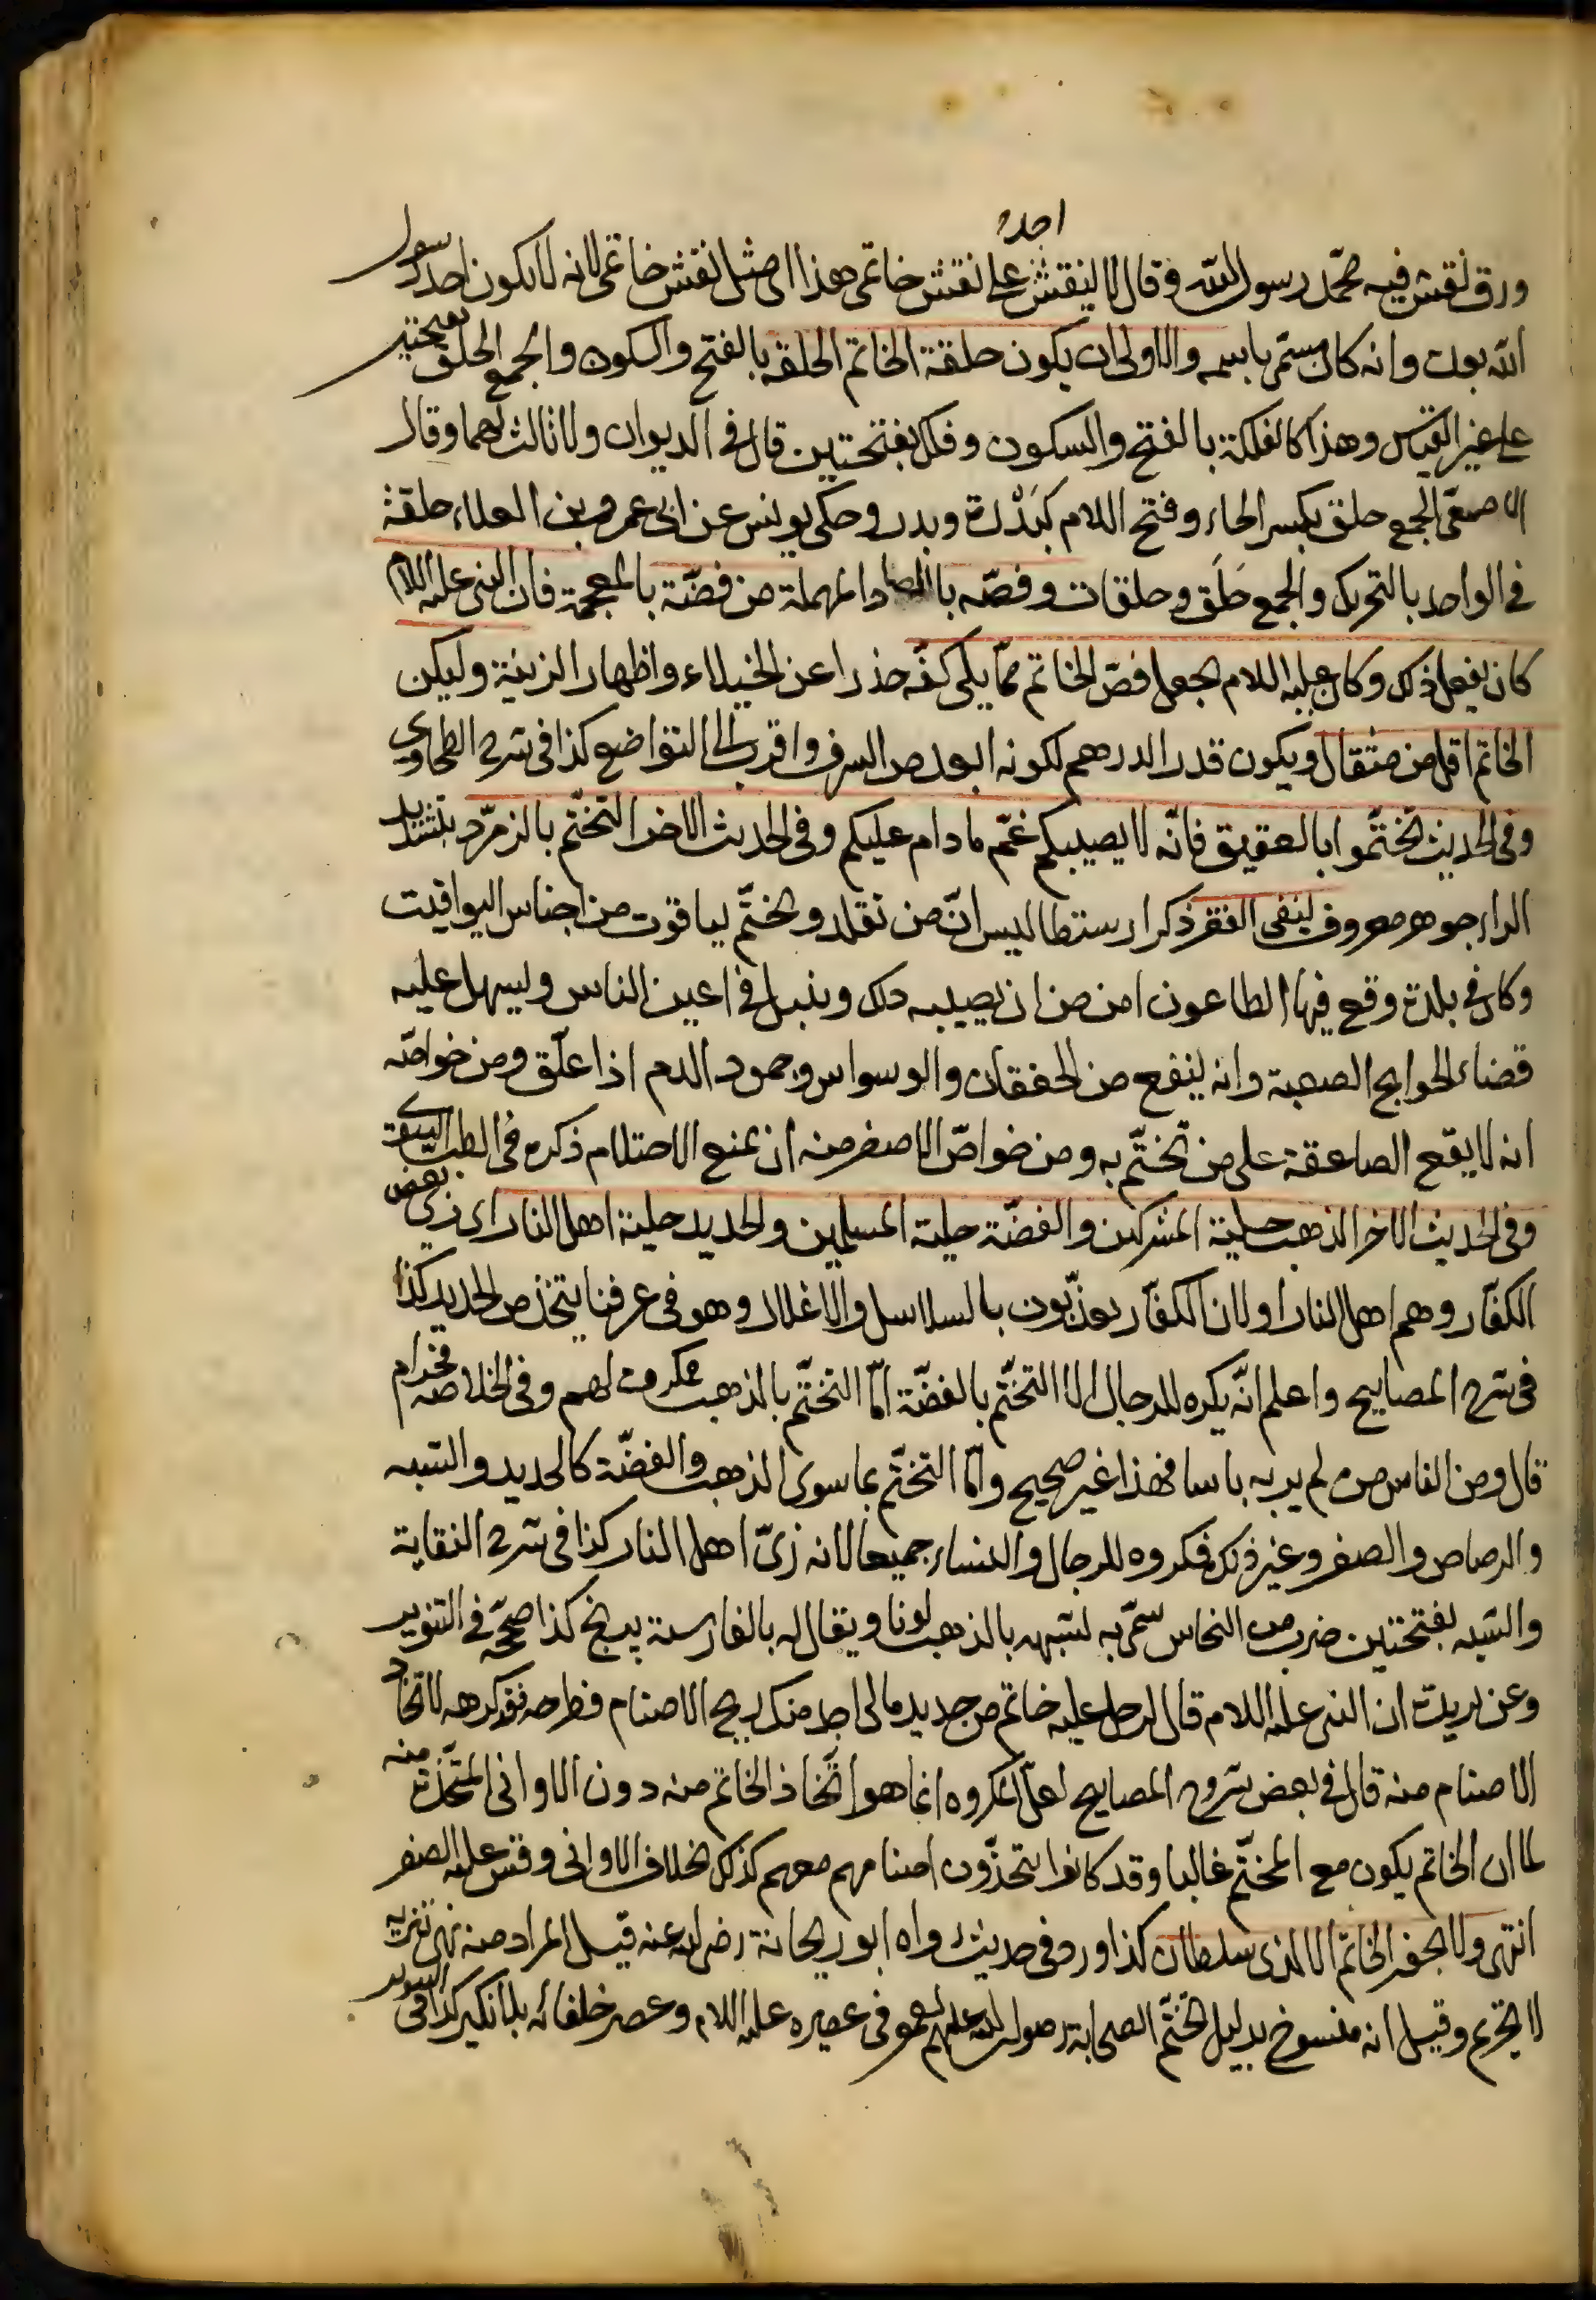 احد
ورق نقش فيه محمّد رسول اللّه وقال لا لينقش على نقش خاتمى هذا اى مثل نقش خاتمى لانه لا يكون احد رسول
اللّه بعدى وانه كان مسمّى باسمه والاولى ان يكون حلقة الخاتم الحلقة بالفتح والسكون والجمع الحلق بفتحتين
على غير القياس وهذا كالفلكة بالفتح والسكون وفلك بفتحتين قال فى الديوان ولا ثالث لهما وقال
الاصمعّى الجمع حلق بكسر الحاء وفتح اللام كبَدْرة وبدر وحكى يونس عن ابى عمرو بن العلاء حلقة
فى الواحد بالتحريك والجمع حَلَق وحلقات وفصّه بالصاد المهملة من فضّة بالمعجمة فان النبى عليه اللام
كان يفعل ذلك وكان عليه اللام يجعل فصّ الخاتم ممّا يلى كفّه حذرا عن الخيلاء واظهار الزينة وليكن
الخاتم اقل من مثقال ويكون قدر الدرهم لكونه ابعد من السرف واقرب الى التواضع كذا فى شرح الطحاوى
وفى الحديث تختّموا بالعقيق فانّه لا يصيبكم غمّ ما دام عليكم وفى الحديث الاخر التختّم بالزمرّد بتشديد
الراء جوهر معروف ينفى الفقر ذكر ارسطاطاليس انّ من تقلد وتختّم بياقوت من اجناس اليواقيت
وكان فى بلدة وقع فيها الطاعون امن من ان يصيبه ذلك وينبل فى اعين الناس ويسهل عليه
قضاء الحوايج الصعبة وانه ينفع من الخفقان والوسواس وجمود الدم اذا علّق ومن خواصّه
انه لا يقع الصاعقة على من تختّم به ومن خواصّ الاصفر منه ان يمنع الاحتلام ذكره فى الطب
وفى الحديث الاخر الذهب حلية المشركين والفضّة حلية المسلمين والحديد حلية اهل النار اى زى بعض
الكفّار وهم اهل النار او لان الكفّار يعذّبون بالسلاسل والاغلال وهو فى عرفنا يتخذ من الحديد كذا
فى شرح المصابيح واعلم انّه يكره للرجال الا التختّم بالفضّة امّا التختّم بالذهب مكروه لهم وفى الخلاصه فحرام
قال ومن الناس من لم ير به باسا فهذا غير صحيح وامّا التختّم بما سوى الذهب والفضّة كالحديد والشبه
والرصاص والصفر وغير ذلك فمكروه للرجال والنساء جميعا لانه زىّ اهل النار كذا فى شرح النقاية
والشبه بفتحتين ضرب من النحاس سمّى به لشبهه بالذهب لونا ويقال له بالفارسية برنج كذا صحّح فى التنوير
وعن بريدة ان النبى عليه اللام قال لرجل عليه خاتم من حديد مالى اجد منك ريح الاصنام فطرحه فقد كرهه لاتخاذ
الاصنام منه قال فى بعض شروح المصابيح لعلّ المكروه انما هو اتّخاذ الخاتم منه دون الاوانى المتّخذة منه
لما ان الخاتم يكون مع المختّم غالبا وقد كانوا يتخذّون اصنامهم معهم كذلك بخلاف الاوانى وقس عليه الصفر
انتهى ولا يجفر الخاتم الا لذى سلطان كذا ورد فى حديث رواه ابو ريحانة رضى الله عنه قيل المراد منه نهى تنزيه
لا تحريم وقيل انه منسوخ بدليل تختّم الصحابة رضوان الله عليهم فى عصره عليه اللام وعصر خلفائه بلا نكير كذا فى التنوير